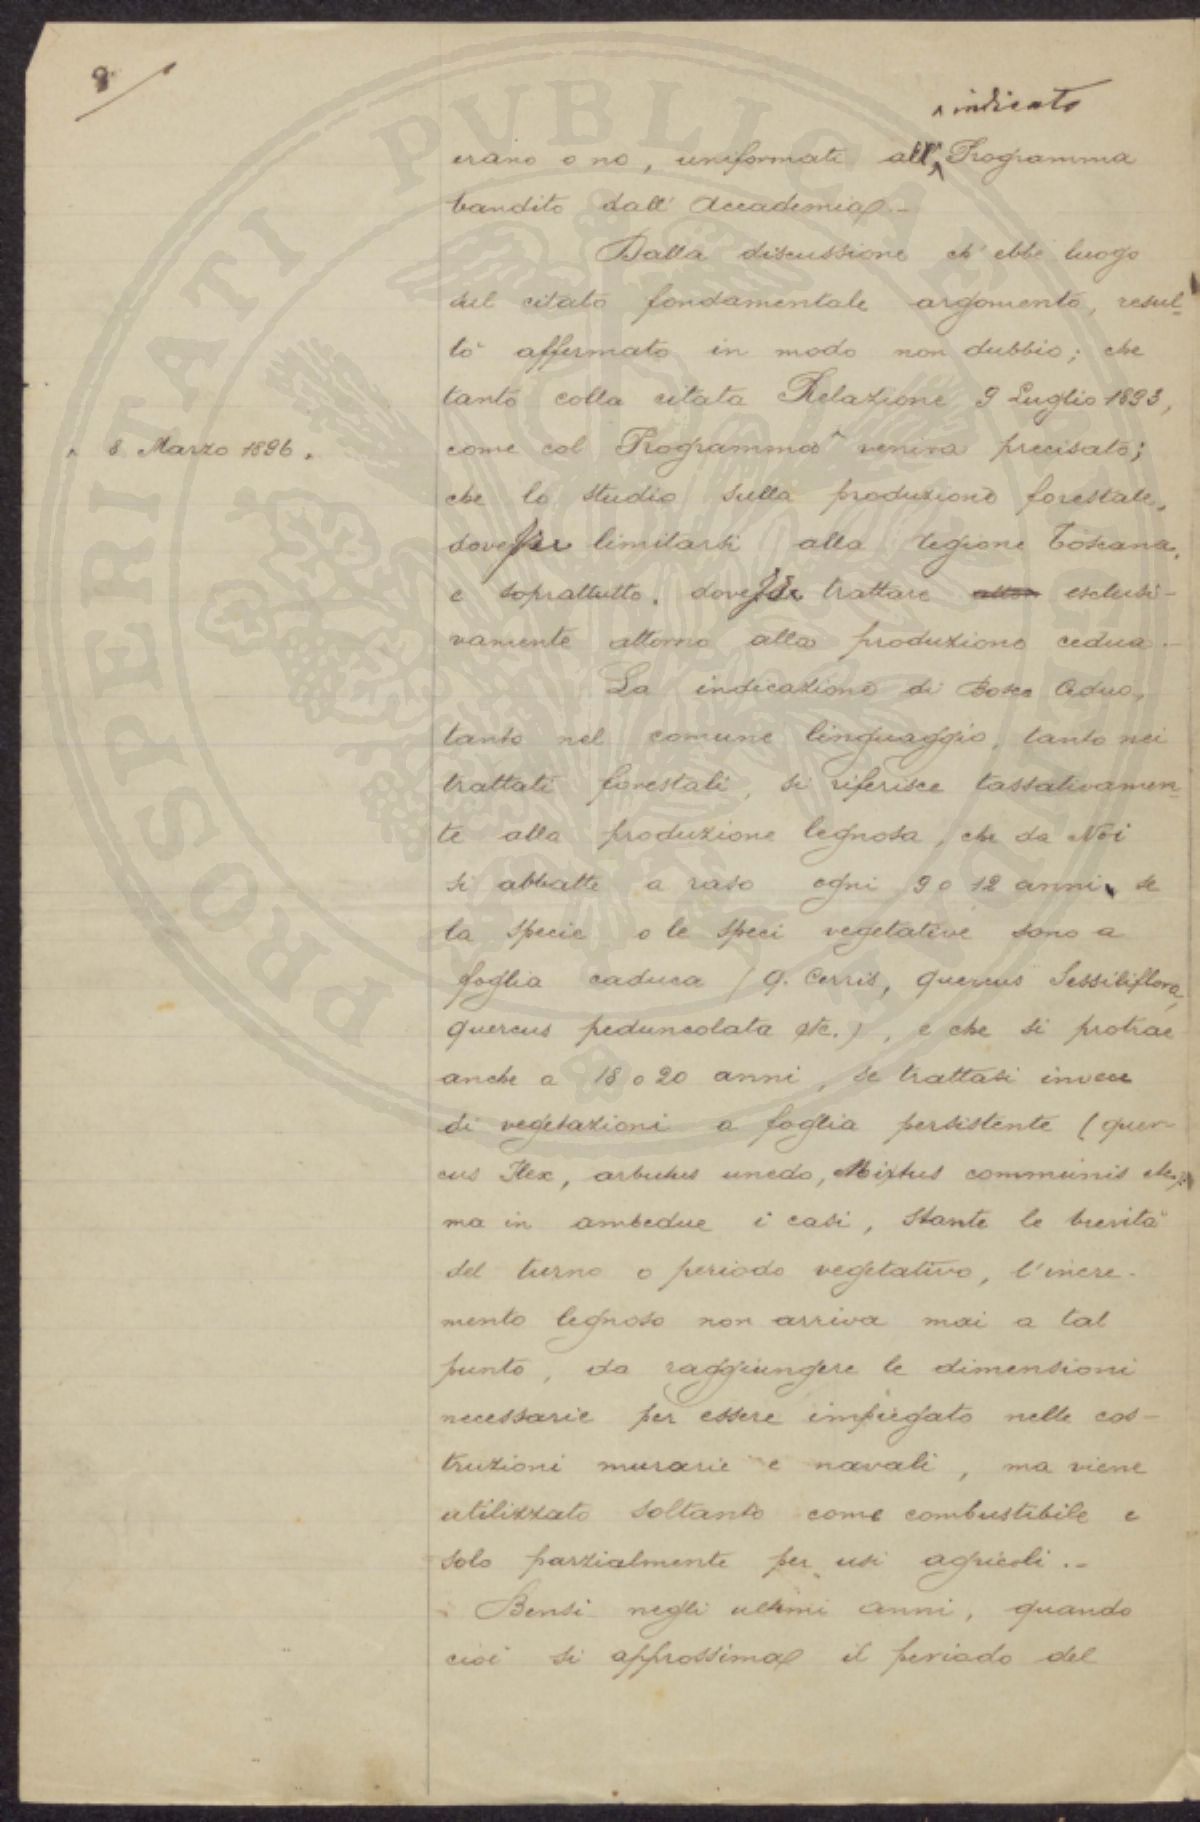 8
^ indicato
erano o no, uniformati all'^ Programma
bandito dall' Accademia.-
Dalla discussione ch' ebbe luogo
sul citato fondamentale argomento, resul-
tò affermato in modo non dubbio; che
tanto colla citata Relazione 9 Luglio 1893,
^ 8 Marzo 1896.
come col Programma ^ veniva precisato;
che lo studio sulla produzione forestale,
dovesse limitarsi alla regione Toscana,
e soprattutto, dovesse trattare esclusi-
vamente attorno alla produzione cedua.-
La indicazione di Bosco Ceduo,
tanto nel comune linguaggio, tanto nei
trattati forestali, si riferisce tassativamen-
te alla produzione legnosa, che da Noi
si abbatte a raso ogni 9 o 12 anni, se
la specie o le speci vegetative sono a
foglia caduca (Q. Cerris, quercus Sessiliflora,
quercus peduncolata etc.), e che si protrae
anche a 18 o 20 anni, se trattasi invece
di vegetazioni a foglia persistente (quer-
cus Ilex, arbutus unedo, Mirtus communis etc.)
ma in ambedue i casi, stante le brevità
del turno o periodo vegetativo, l'incre-
mento legnoso non arriva mai a tal
punto, da raggiungere le dimensioni
necessarie per essere impiegato nelle cos-
truzioni murarie e navali, ma viene
utilizzato soltanto come combustibile e
solo parzialmente per usi agricoli.-
Bensi negli ultimi anni, quando
cioè si approssima il periodo del
PROSPERITATI PUBLICAE AUGENDAE